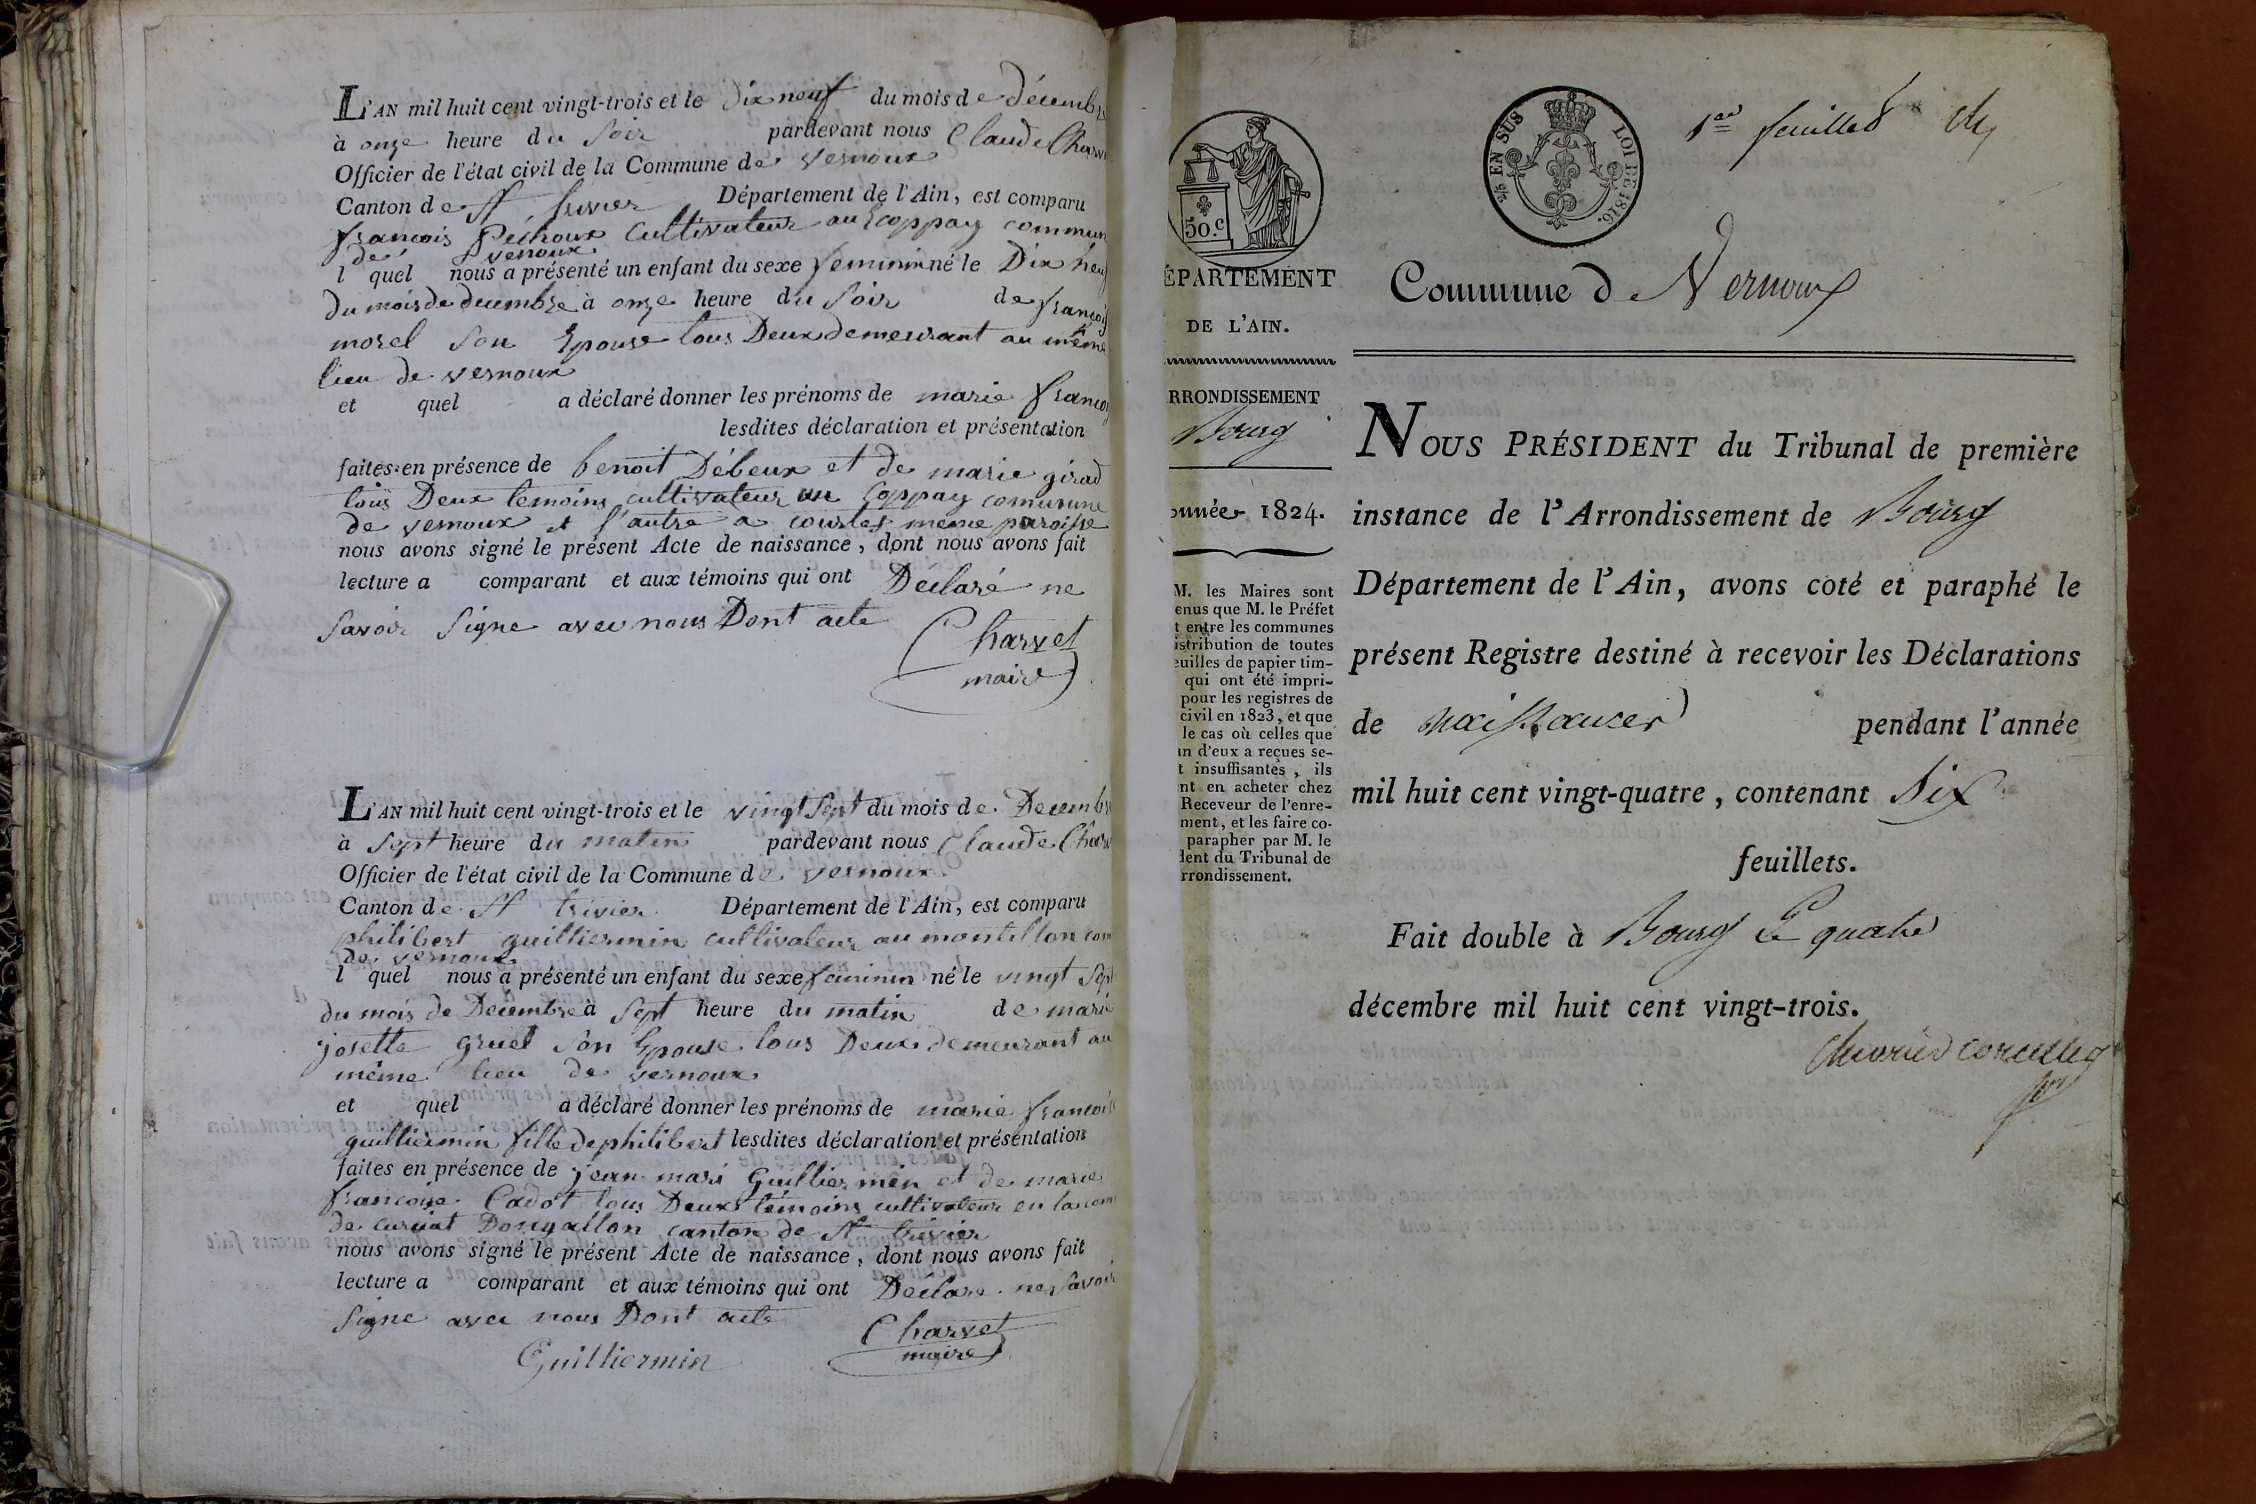 L'AN mil huit cent vingt-trois et le dix neuf du mois de décemb
à onze heure du soir pardevant nous Claude Char
Officier de l'état civil de la Commune de vernoux
Canton de St trivier Département de l'Ain, est comparu
francois cultivateur au commun
de vernoux
l quel nous a présenté un enfant du sexe feminin né le Dix neuf
du mois de decembre à onze heure du soir de françois
morel son Epouse tous Deux demeurant au même
lieu de vernoux
et quel a déclaré donner les prénoms de marie francoi
lesdites déclaration et présentation
faites en présence de benoit Débeux et de marie girad
tous Deux temoins cultivateur au Coppay commune
de vernoux et l'autre a courtes meme paroisse
nous avons signé le présent Acte de naissance, dont nous avons fait
lecture a comparant et aux témoins qui ont Déclaré ne
savoir signe avec nous Dont acte
Charvet
maire
L'AN mil huit cent vingt-trois et le vingt sept du mois de Decemb
à sept heure du matin pardevant nous Claude Char
Officier de l'état civil de la Commune de vernoux
Canton de St trivier Département de l'Ain, est comparu
philibert guilliermin cultivateur au montillon com
de vernoux
l quel nous a présenté un enfant du sexe feminin né le vingt sept
du mois de Decembre à sept heure du matin de marie
josette gruel son Epouse tous Deux demeurant au
même lieu de vernoux
et quel a déclaré donner les prénoms de marie francois
guilliermin fille de philibert lesdites déclaration et présentation
faites en présence de jean mari Guilliermin et de marie
francoise Cadot tous Deux témoins cultivateur en la com
de curciat Dongallon canton de St trivier
nous avons signé le présent Acte de naissance, dont nous avons fait
lecture a comparant et aux témoins qui ont Déclare ne savoir
signe avec nous Dont acte
Charvet
maire
Guilliermin
50.c
2/5 EN SUS LOI DE 1816.
1er feuillet
ÉPARTEMENT
DE L'AIN.
RRONDISSEMENT
Bourg
année 1824.
M. les Maires sont
enus que M. le Préfet
t entre les communes
istribution de toutes
euilles de papier tim-
qui ont été impri-
pour les registres de
civil en 1823, et que
le cas où celles que
un d'eux a reçues se-
t insuffisantes, ils
nt en acheter chez
Receveur de l'enre-
ment, et les faire co-
parapher par M. le
dent du Tribunal de
rrondissement.
Commune de Vernoux
NOUS PRÉSIDENT du Tribunal de première
instance de l'Arrondissement de Bourg
Département de l'Ain, avons coté et paraphé le
présent Registre destiné à recevoir les Déclarations
de naissances pendant l'année
mil huit cent vingt-quatre, contenant Six
feuillets.
Fait double à Bourg le quatre
décembre mil huit cent vingt-trois.